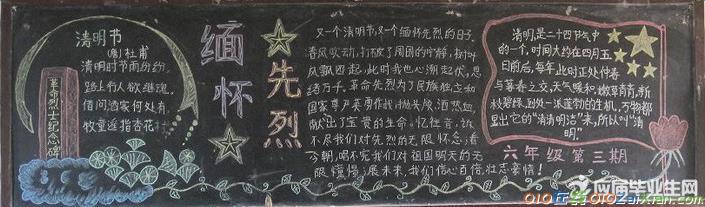 清明节
(唐)杜甫
清明时节雨纷纷,
路上行人欲继魂。
借问酒家何处有,
牧童遥指杏花村。
革命烈士纪念碑
缅怀
先烈
又一个清明节,又一个缅怀先烈的日子,
春风吹动,打破了周围的宁静,树叶
风飘四起,此时我也心潮起伏,思
绪万千。革命先烈为了民族独立和
国家尊严英勇作战,抛头颅,洒热血,
献出了宝贵的生命。忆往昔,说
不尽我们对先烈的无限怀念;看
今朝,唱不完我们对祖国明天的无
限憧憬;展未来,我们信心百倍,壮志豪情!
清明,是二十四节气中
的一个,时间大约在四月五
日前后,每年此时正处仲春
与暮春之交,天气暖和,嫩草青青,新
枝碧绿,到处一派蓬勃的生机,万物都
显出它的“清清明洁”来,所以叫“清
明”。
六年级 第三期
应届毕业生网